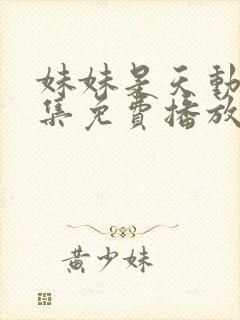 妹妹是天動
集免費播放
黄少妹